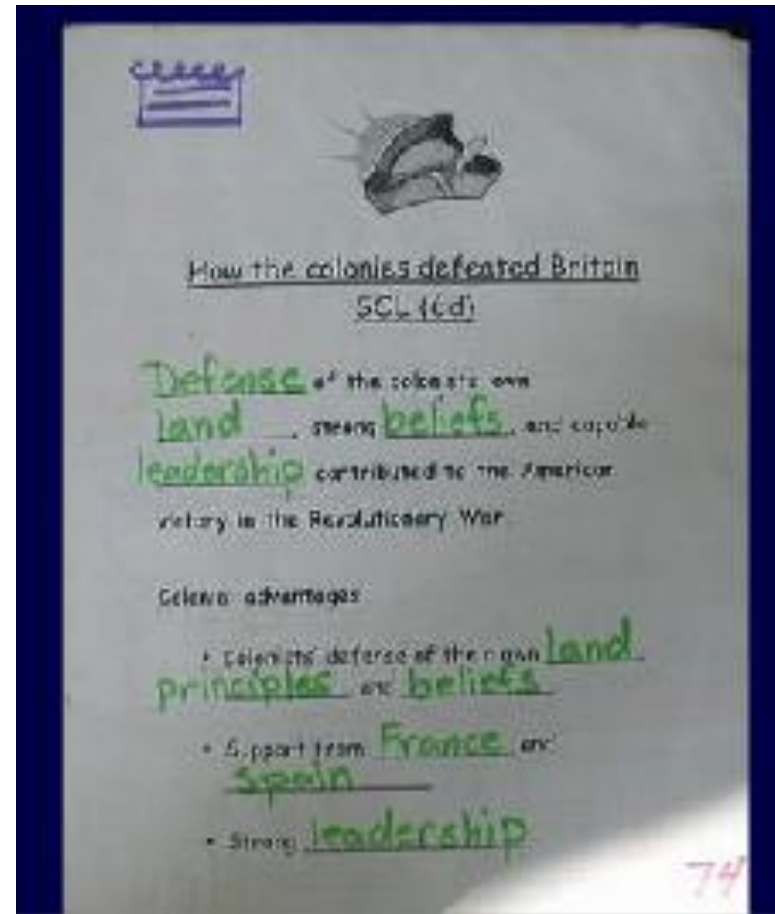 How the colonies defeated Britain
SCL (6d)
Defense of the colonists own
land, strong beliefs, and capable
leadership contributed to the American
victory in the Revolutionary War.
Colonial advantages
• Colonists' defense of their own land
principles and beliefs
• Support from France and
Spain
• Strong leadership
74